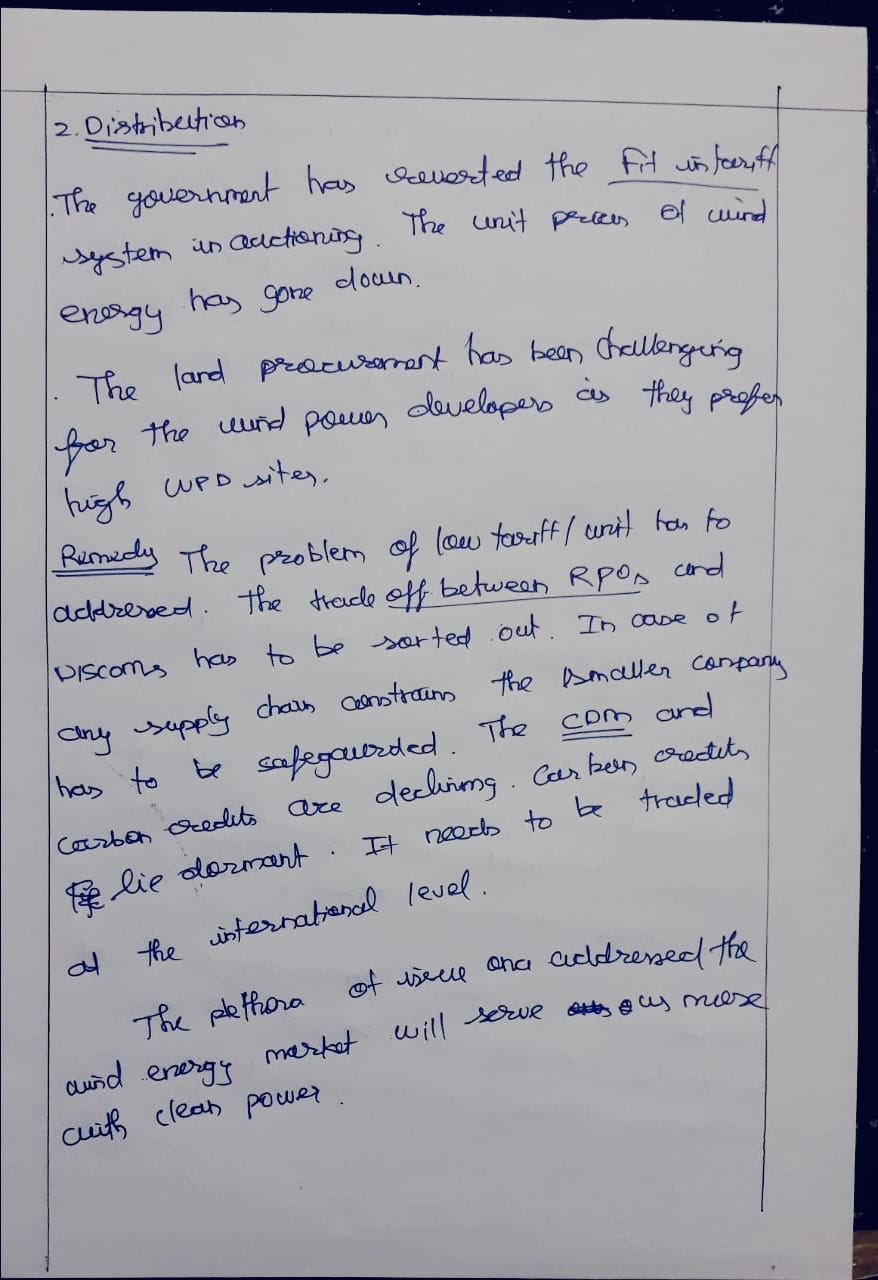 2. Distribution
. The government has reverted the Fit in tariff
system in auctioning. The unit prices of wind
energy has gone down.
. The land procurement has been challenging
for the wind power developers as they prefer
high WPD sites.
Remedy The problem of low tariff/unit has to
addressed. The trade off between RPOs and
DISCOMs has to be sorted out. In case of
any supply chain constrains the smaller company
has to be safegaurded. The CDM and
carbon credits are declining. Carbon credits
lie dormant. It needs to be traded
at the international level.
The plethora of issue once addressed the
wind energy market will serve us more
with clean power.